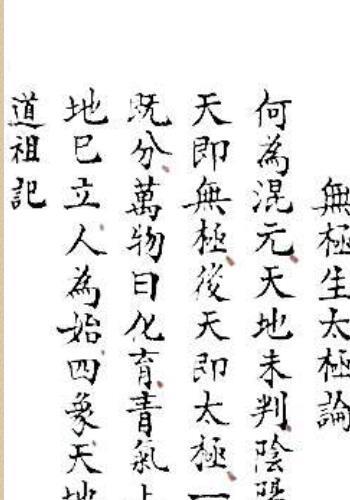 無極生太極論
何為混元天地未判陰陽
天即無極後天即太極一
既分萬物曰化育青氣上
地已立人為始四象天地
道祖記